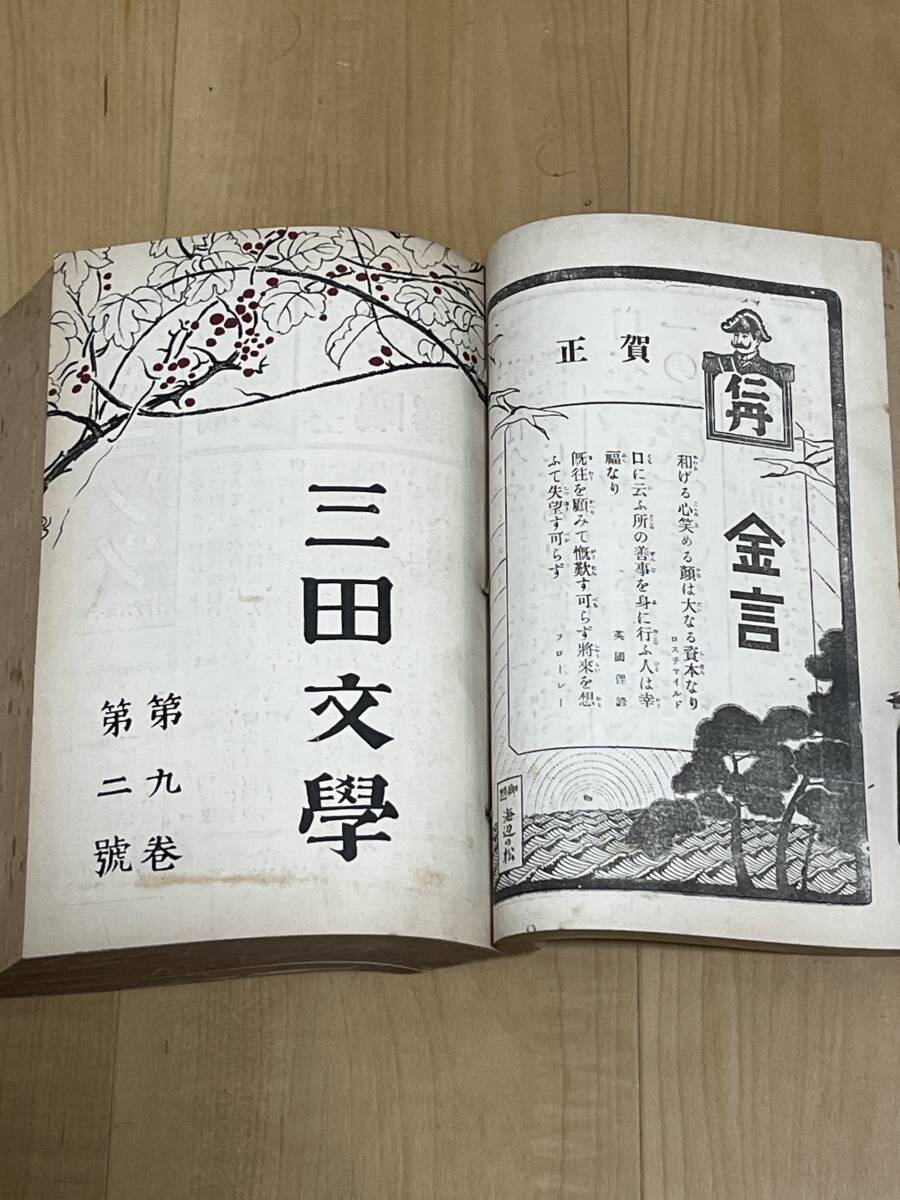 賀正
仁丹
金言
和げる心笑める顔は大なる資本なり
ロスチャイルド
口に云ふ所の善事を身に行ふ人は幸
福なり
英國俚諺
既往を顧みて慨歎す可らず將來を想
ふて失望す可らず
フローレー
御題 海辺の松
三田文學
第九卷
第二號